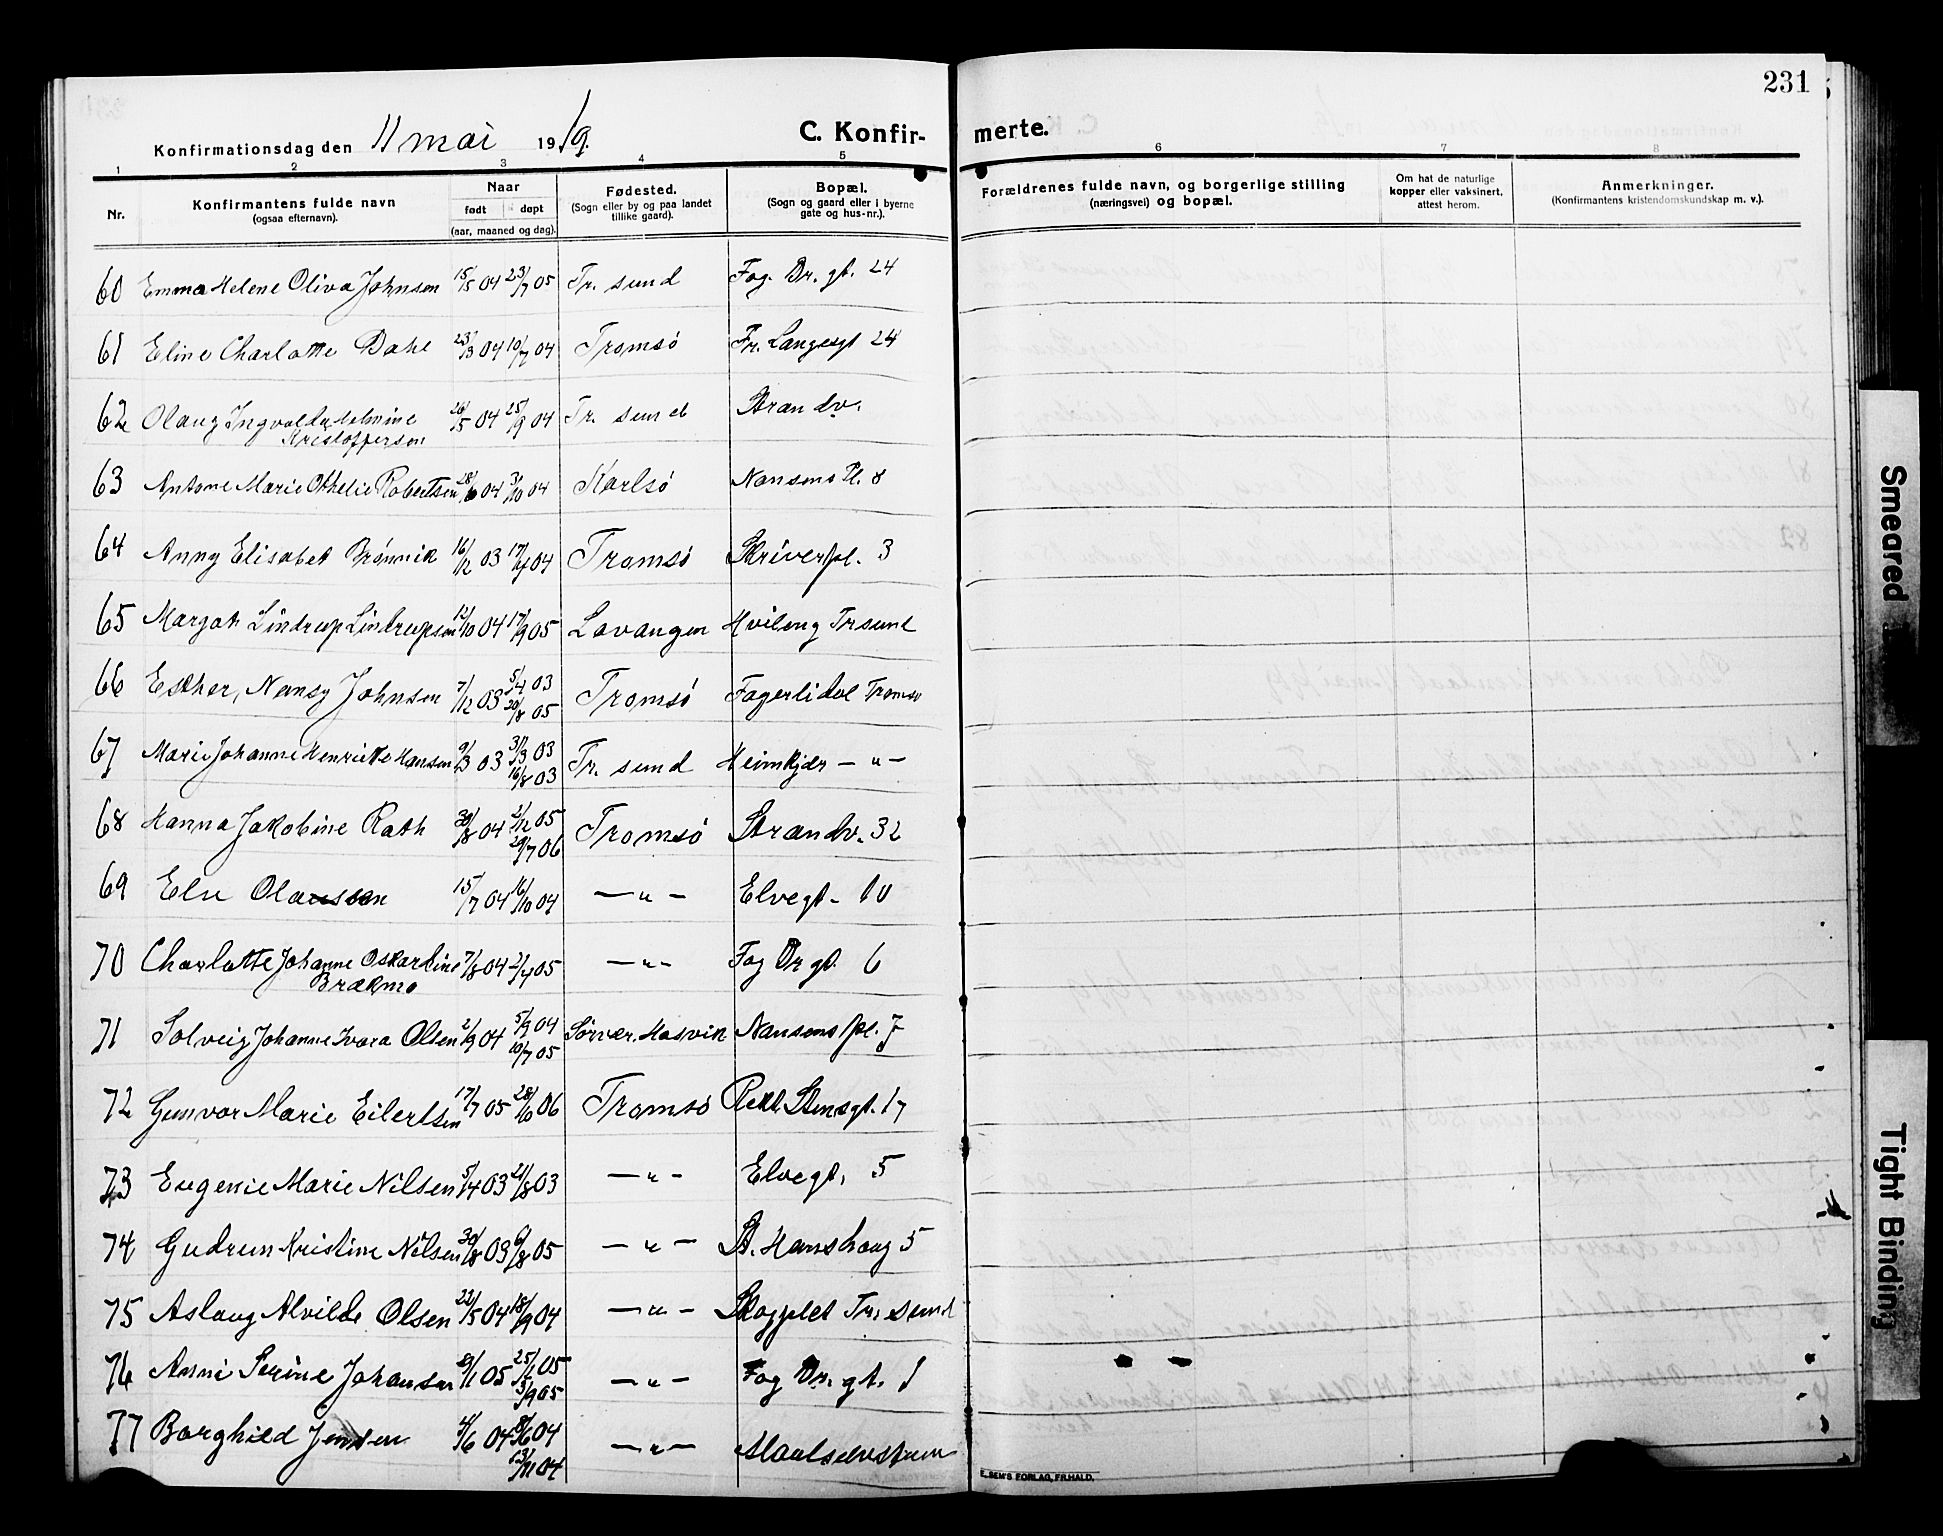 231
Konfirmationsdag den 11 mai 1919. C. Konfirmerte.
1 2 3 4 5 6 7 8
Nr.
Konfirmantens fulde navn
(ogsaa efternavn).
Naar
født døpt
(aar, maaned og dag).
Fødested.
(Sogn eller by og paa landet
tillike gaard).
Bopæl.
(Sogn og gaard eller i byerne
gate og hus-nr.).
Forældrenes fulde navn, og borgerlige stilling
(næringsvei) og bopæl.
Om hat de naturlige
kopper eller vaksinert,
attest herom.
Anmerkninger.
(Konfirmantens kristendomskundskap m. v.).
60 Emma Helene Oliva Johnsen 15/5 04 23/7 05 Tr. sund Fog. Dr. gt. 24
61 Eline Charlotte Dahl 23/3 04 10/7 04 Tromsø Fr. Langesgt 24
62 Olaug Ingvalda 26/5 04 25/9 04 Tr. sund Strandv.
Kristoffersen
63 Antone Marie Othelie Robertsen 28/6 04 3/10 04 Karlsø Nansens Pl. 8
64 Anny Elisabet Brønnik 16/12 03 17/4 04 Tromsø Skriverpl. 3
65 Margot Lindrup Lindrupsen 12/10 04 17/9 05 Lavangen Hvileng Tr sund
66 Esther, Nansy Johnsen 7/12 03 5/4 03 20/8 05 Tromsø Fagerlidal Tromsø
67 Marie Johanne Henriette Hansen 9/3 03 31/3 03 16/8 03 Tr. sund Heimkjær — " —
68 Hanna Jakobine Rath 30/8 04 2/12 05 29/7 06 Tromsø Strandv. 32
69 Elu Olaussen 15/7 04 16/10 04 — " — Elvegt. 10
70 Charlotte Johanne Oskarline 7/8 04 2/4 05 — " — Fog Dr gt. 6
Brækmo
71 Solveig Johanne Ivara Olsen 2/9 04 5/9 04 10/7 05 Sørvær. Hasvik Nansens pl. 7
72 Gunvor Marie Eilertsen 17/7 05 28/10 06 Tromsø Rekt. Stensgt. 17
73 Eugenie Marie Nilsen 5/4 03 2/8 03 — " — Elvegt, 5
74 Gudrun Kristine Nilsen 30/8 03 6/8 05 — " — St. Hanshaug 5
75 Aslaug Alvilde Olsen 22/5 04 18/9 04 — " — Skogplet Tr. sund
76 Anni Serine Johansen /1 05 25/1 05 3/9 05 — " — Fog Dr. gt. 1
77 Borghild Jensen 4/6 04 8/6 04 13/11 04 — " —
E. SEM'S FORLAG, FR.HALD.
Smeared
Tight Binding